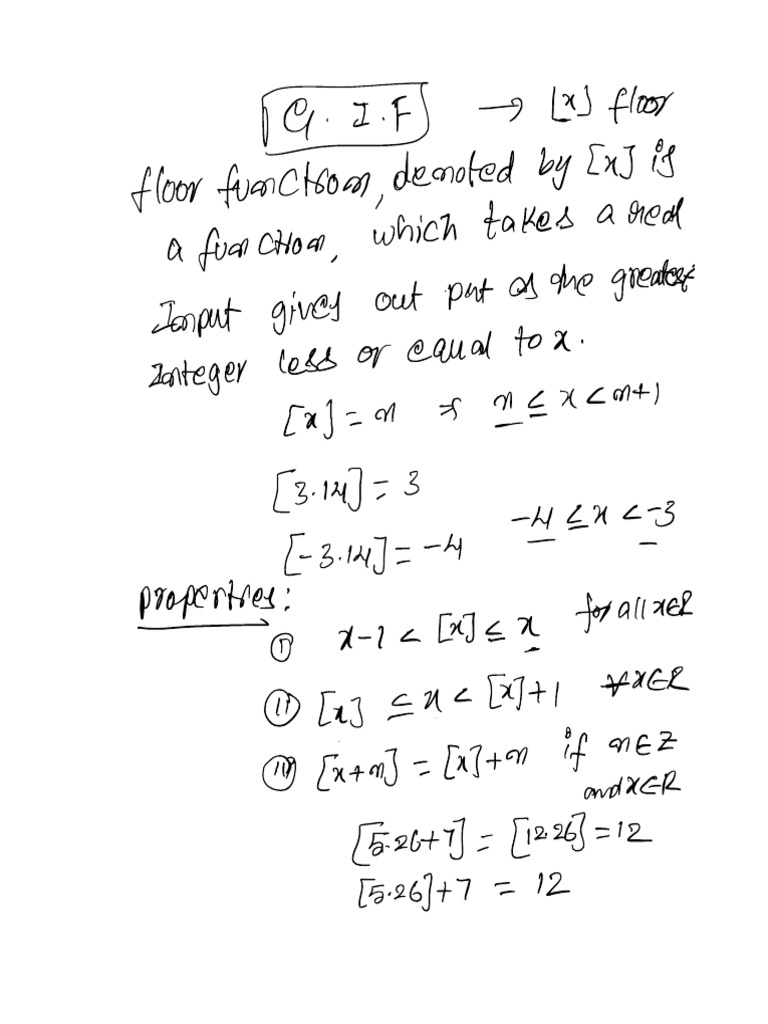 G.I.F → ⌊x⌋ floor
floor function, denoted by [x] is
a function, which takes a real
Input gives out put as the greatest
Integer less or equal to x.
[x] = n ⇒ n ≤ x < n+1
[3.14] = 3
[-3.14] = -4 -4 ≤ x < -3
properties:
(i) x-1 < [x] ≤ x for all x∈R
(ii) [x] ≤ x < [x]+1 ∀x∈R
(iii) [x+n] = [x]+n if n∈Z
and x∈R
[5.26+7] = [12.26] = 12
[5.26]+7 = 12